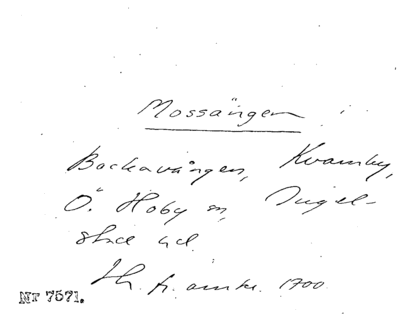 Mossängen
Backavången, Kvarnby,
Ö. Hoby sn, Ingel-
stad hd.
fr. omkr. 1700.
Nr 7571.